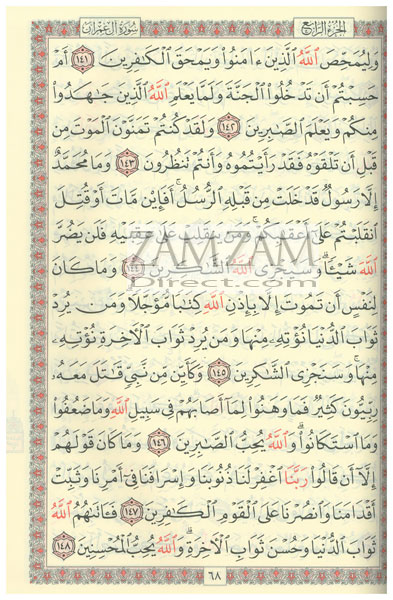 سورة آل عمران
الجزء الرابع
وَلِيُمَحِّصَ ٱللَّهُ ٱلَّذِينَ ءَامَنُوا۟ وَيَمْحَقَ ٱلْكَٰفِرِينَ ١٤١ أَمْ
حَسِبْتُمْ أَن تَدْخُلُوا۟ ٱلْجَنَّةَ وَلَمَّا يَعْلَمِ ٱللَّهُ ٱلَّذِينَ جَٰهَدُوا۟
مِنكُمْ وَيَعْلَمَ ٱلصَّٰبِرِينَ ١٤٢ وَلَقَدْ كُنتُمْ تَمَنَّوْنَ ٱلْمَوْتَ مِن
قَبْلِ أَن تَلْقَوْهُ فَقَدْ رَأَيْتُمُوهُ وَأَنتُمْ تَنظُرُونَ ١٤٣ وَمَا مُحَمَّدٌ
إِلَّا رَسُولٌ قَدْ خَلَتْ مِن قَبْلِهِ ٱلرُّسُلُ ۚ أَفَإِي۟ن مَّاتَ أَوْ قُتِلَ
ٱنقَلَبْتُمْ عَلَىٰٓ أَعْقَٰبِكُمْ ۚ وَمَن يَنقَلِبْ عَلَىٰ عَقِبَيْهِ فَلَن يَضُرَّ
ٱللَّهَ شَيْـًٔا ۗ وَسَيَجْزِى ٱللَّهُ ٱلشَّٰكِرِينَ ١٤٤ وَمَا كَانَ
لِنَفْسٍ أَن تَمُوتَ إِلَّا بِإِذْنِ ٱللَّهِ كِتَٰبًا مُّؤَجَّلًا ۗ وَمَن يُرِدْ
ثَوَابَ ٱلدُّنْيَا نُؤْتِهِۦ مِنْهَا وَمَن يُرِدْ ثَوَابَ ٱلْـَٔاخِرَةِ نُؤْتِهِۦ
مِنْهَا ۚ وَسَنَجْزِى ٱلشَّٰكِرِينَ ١٤٥ وَكَأَيِّن مِّن نَّبِىٍّ قَٰتَلَ مَعَهُۥ
رِبِّيُّونَ كَثِيرٌ فَمَا وَهَنُوا۟ لِمَآ أَصَابَهُمْ فِى سَبِيلِ ٱللَّهِ وَمَا ضَعُفُوا۟
وَمَا ٱسْتَكَانُوا۟ ۗ وَٱللَّهُ يُحِبُّ ٱلصَّٰبِرِينَ ١٤٦ وَمَا كَانَ قَوْلَهُمْ
إِلَّآ أَن قَالُوا۟ رَبَّنَا ٱغْفِرْ لَنَا ذُنُوبَنَا وَإِسْرَافَنَا فِىٓ أَمْرِنَا وَثَبِّتْ
أَقْدَامَنَا وَٱنصُرْنَا عَلَى ٱلْقَوْمِ ٱلْكَٰفِرِينَ ١٤٧ فَـَٔاتَىٰهُمُ ٱللَّهُ
ثَوَابَ ٱلدُّنْيَا وَحُسْنَ ثَوَابِ ٱلْـَٔاخِرَةِ ۗ وَٱللَّهُ يُحِبُّ ٱلْمُحْسِنِينَ ١٤٨
٦٨
ZAMZAM
Direct.com